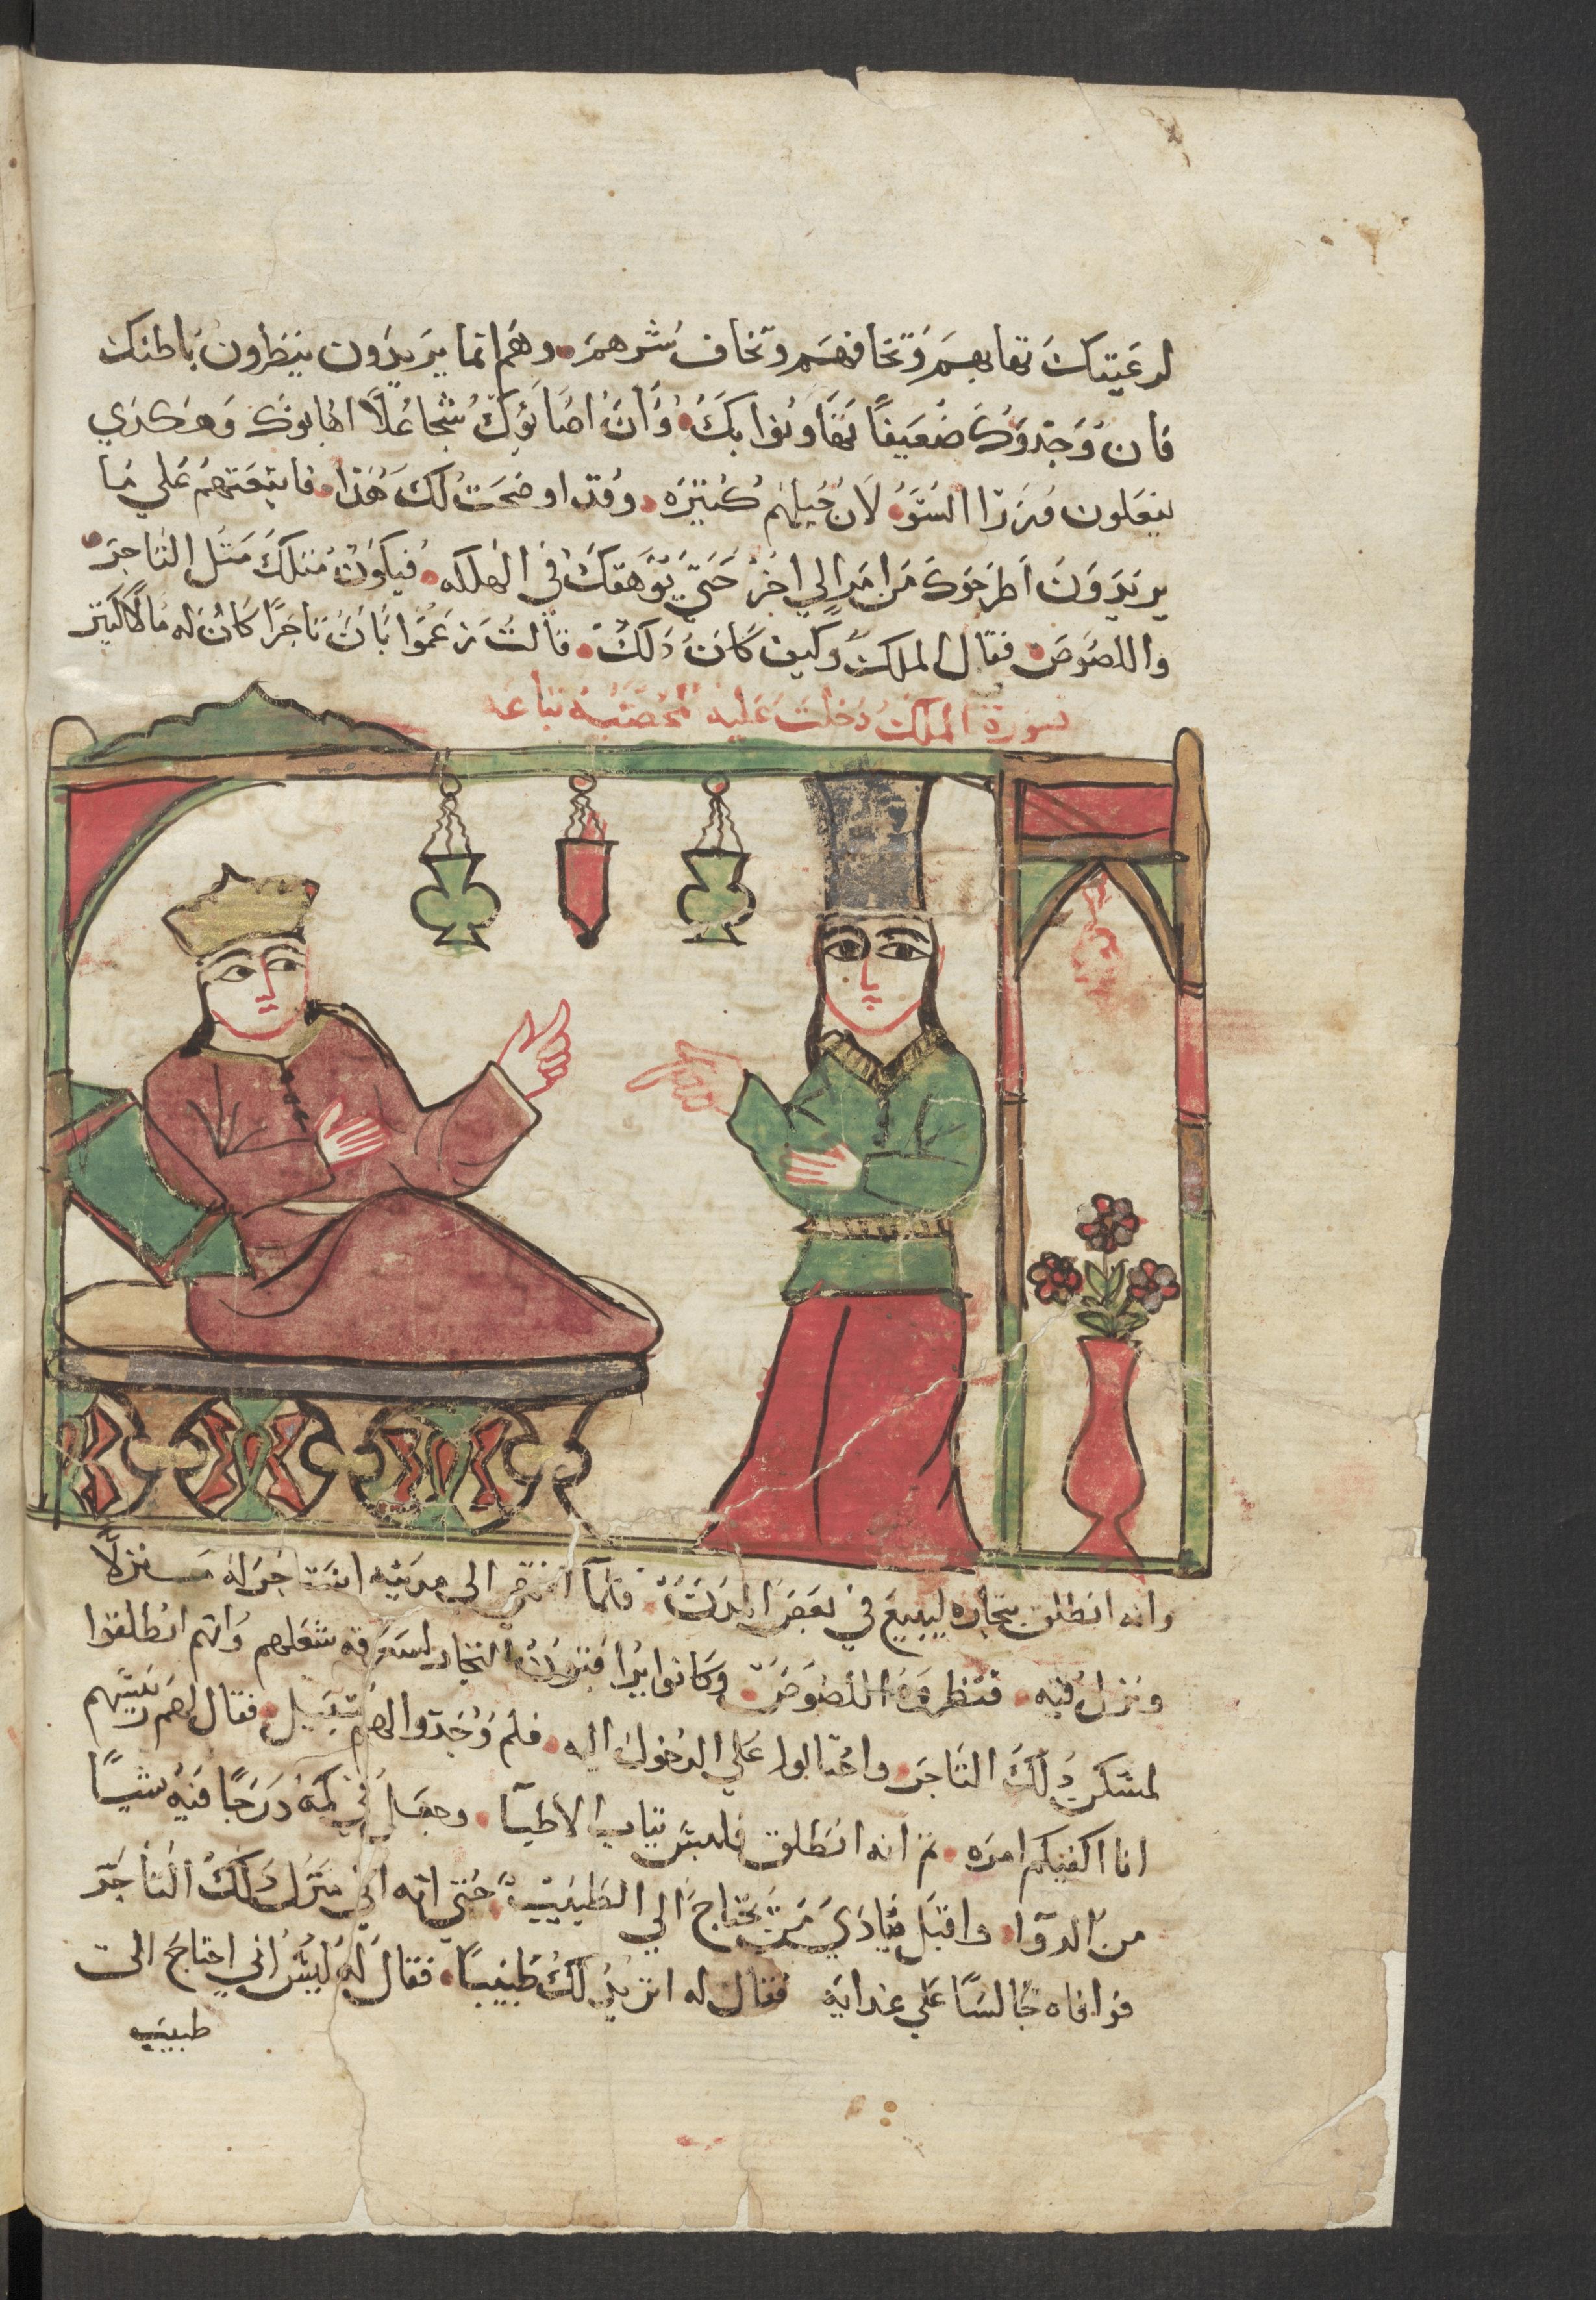 لرعيتك تهابهم وتخافهم وتخاف شرهم وهم انما يريدون ينظرون باطنك
فان وجدوك ضعيفاً تهاونوا بك وان اصابوك شجاعاً هابوك وهكذي
يفعلون وزرا السو لان حيلهم كثيره وقد اوضحت لك هذا فانبعتهم علي ما
يريدون اطرحوك من امر الي اخر حتي يوقعك في الهلكه فيكون مثلك مثل التاجر
واللصوص فقال الملك وكيف كان دلك قالت زعموا بان تاجرا كان له مالا كثير
سورة الملك دخلت عليه تباعه
وانه انطلق بتجاره ليبيع في بعض المدن فلما انتهي الي مدينه استاجر له منزلاً
ونزل فيه فنظروه اللصوص وكانوا يراقبون التجار لسرقه شغلهم وانهم انطلقوا
لمسكن دلك التاجر واحتالوا علي الدخول اليه فلم وجدوا لهم سبيل فقال لهم رييسهم
انا اكفيكم امره تم انه انطلق فلبس تياب الاطبا وجعل في كمه درجا فيه شيا
من الدوا واقبل ينادي من يحتاج الي الطبيب حتي انه اتي منزل دلك التاجر
فوافاه جالسا علي غدايه فقال له اتريد لك طبيبا فقال له ليس اني احتاج الي
طبيب